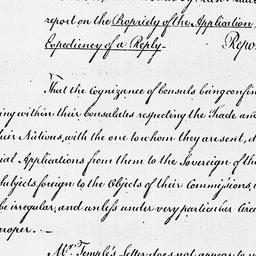 report on the Propriety of the Application,
Expediency of a Reply—
Repo
That the Cognizance of Consuls being confin
ing within their Consulates respecting the Trade and
heir Nations, with the one to whom they are sent, d
ial Applications from them to the Sovereign of th
ubjects foreign to the Objects of their Commissions,
be irregular, and unless under very particular Circu
roper. . —
Mr. Temple's Letter does not appear to